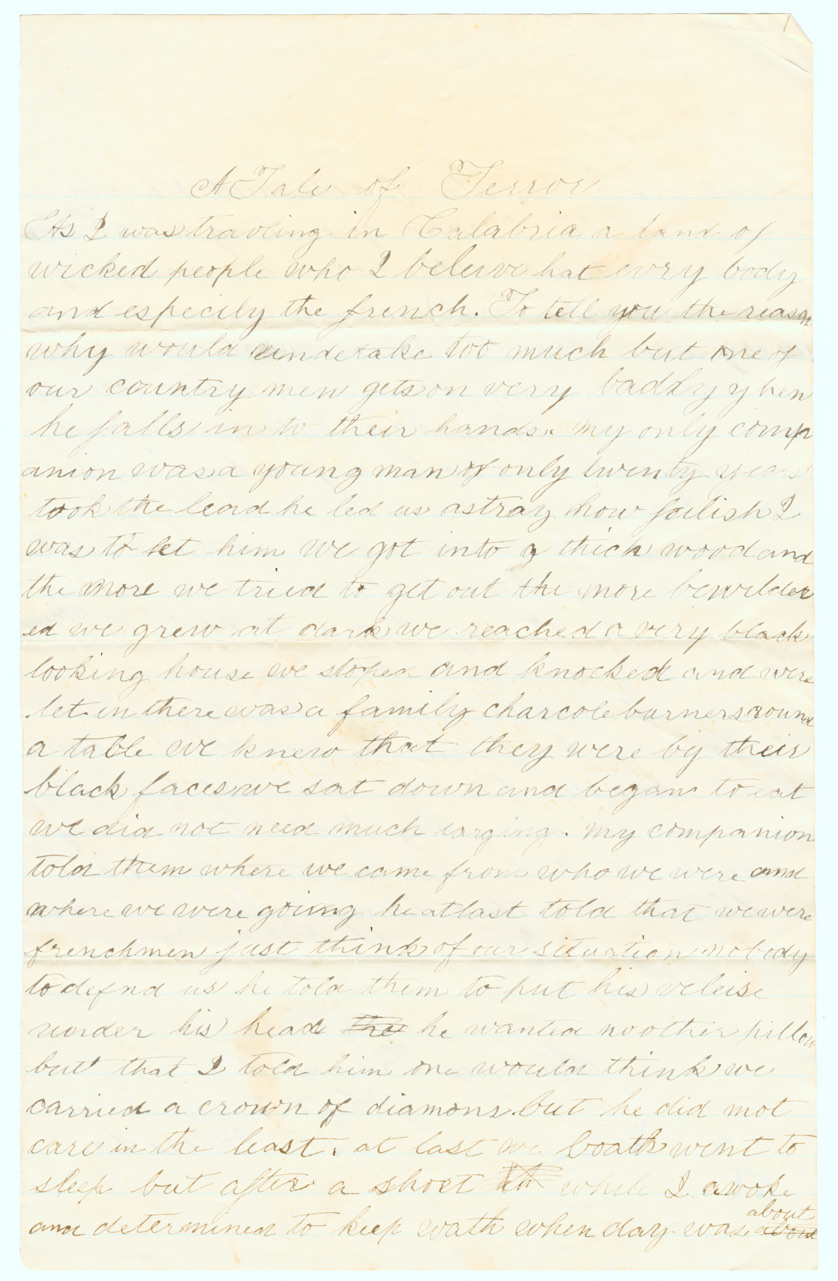 A Tale of Terror
As I was travling in Calabria a land of
wicked people who I beleive hat evry body
and especily the french. To tell you the reason
why would undetake too much but one of
our country men gets on very baddly when
he falls in to their hands. my only comp
anion was a young man of only twenty years
took the lead he led us astray how foilish I
was to let him we got into a thick wood and
the more we tried to get out the more bewilder
ed we grew at dark we reached a very black
looking house we stoped and knocked and were
let in there was a family charcole burners round
a table we knew that they were by their
black faces we sat down and began to eat
we did not need much urging. my companion
told them where we came from who we were and
where we were going he at last told that we were
frenchmen just think of our situation nobody
to defnd us he told them to put his veleise
under his head he wanted no other pillow
but that I told him one would think we
carried a crown of diamons. but he did not
care in the least. at last we boath went to
sleep but after a short while I awoke
and determined to keep wath when day was about